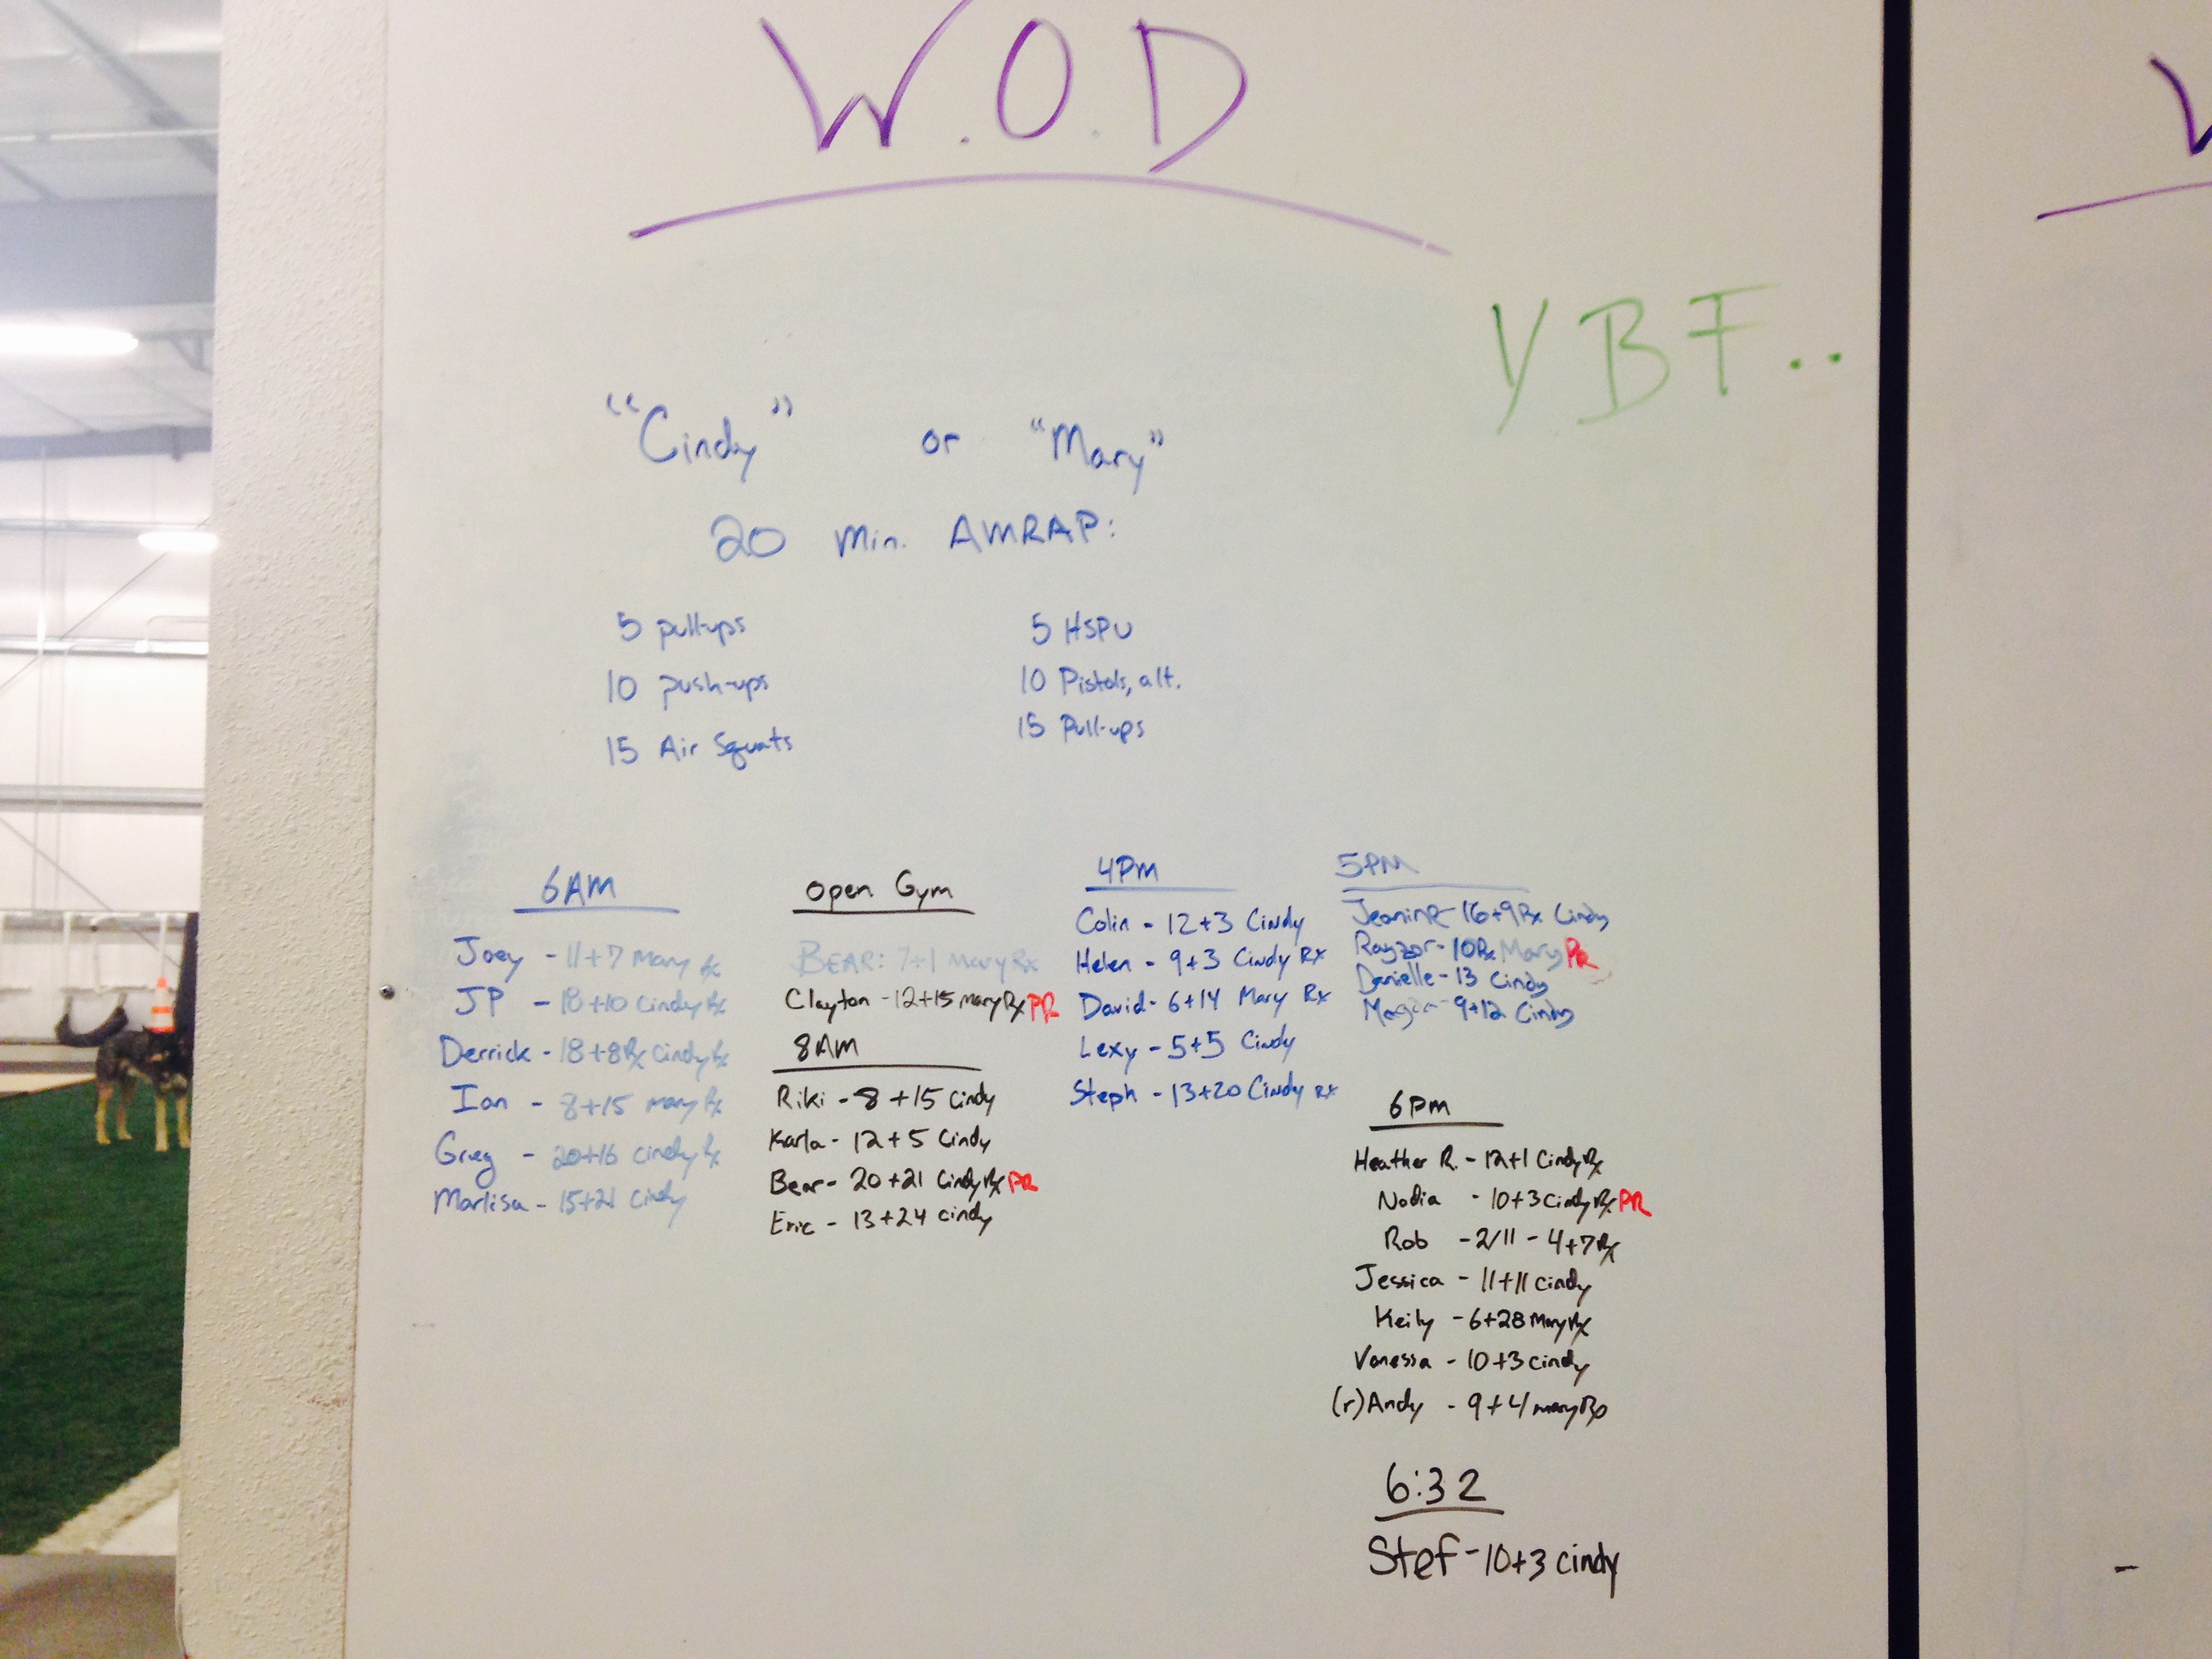 W.O.D
YBF..
"Cindy" or "Mary"
20 Min. AMRAP:
5 pull-ups
10 push-ups
15 Air Squats
5 HSPU
10 Pistols, alt.
15 Pull-ups
6AM
Joey - 11+7 Mary Rx
JP - 18+10 Cindy Rx
Derrick - 18+8Rx Cindy Rx
Ian - 8+15 Mary Rx
Greg - 20+16 Cindy Rx
Marlisa - 15+21 Cindy
Open Gym
BEAR: 7+1 Mary Rx
Clayton - 12+15 Mary Rx PR
8AM
Riki - 8+15 Cindy
Karla - 12+5 Cindy
Bear - 20+21 Cindy Rx PR
Eric - 13+24 Cindy
4PM
Colin - 12+3 Cindy
Helen - 9+3 Cindy Rx
David - 6+14 Mary Rx
Lexy - 5+5 Cindy
Steph - 13+20 Cindy Rx
5PM
Jeanine - 16+9 Rx Cindy
Rayzor - 10Rx Mary PR
Danielle - 13 Cindy
9+12 Cindy
6PM
Heather R. - 12+1 Cindy Rx
Nadia - 10+3 Cindy Rx PR
Rob - 2/11 - 4+7 Rx
Jessica - 11+11 Cindy
Keily - 6+28 Mary Rx
Vanessa - 10+3 Cindy
(r)Andy - 9+4 Mary Rx
6:32
Stef - 10+3 Cindy